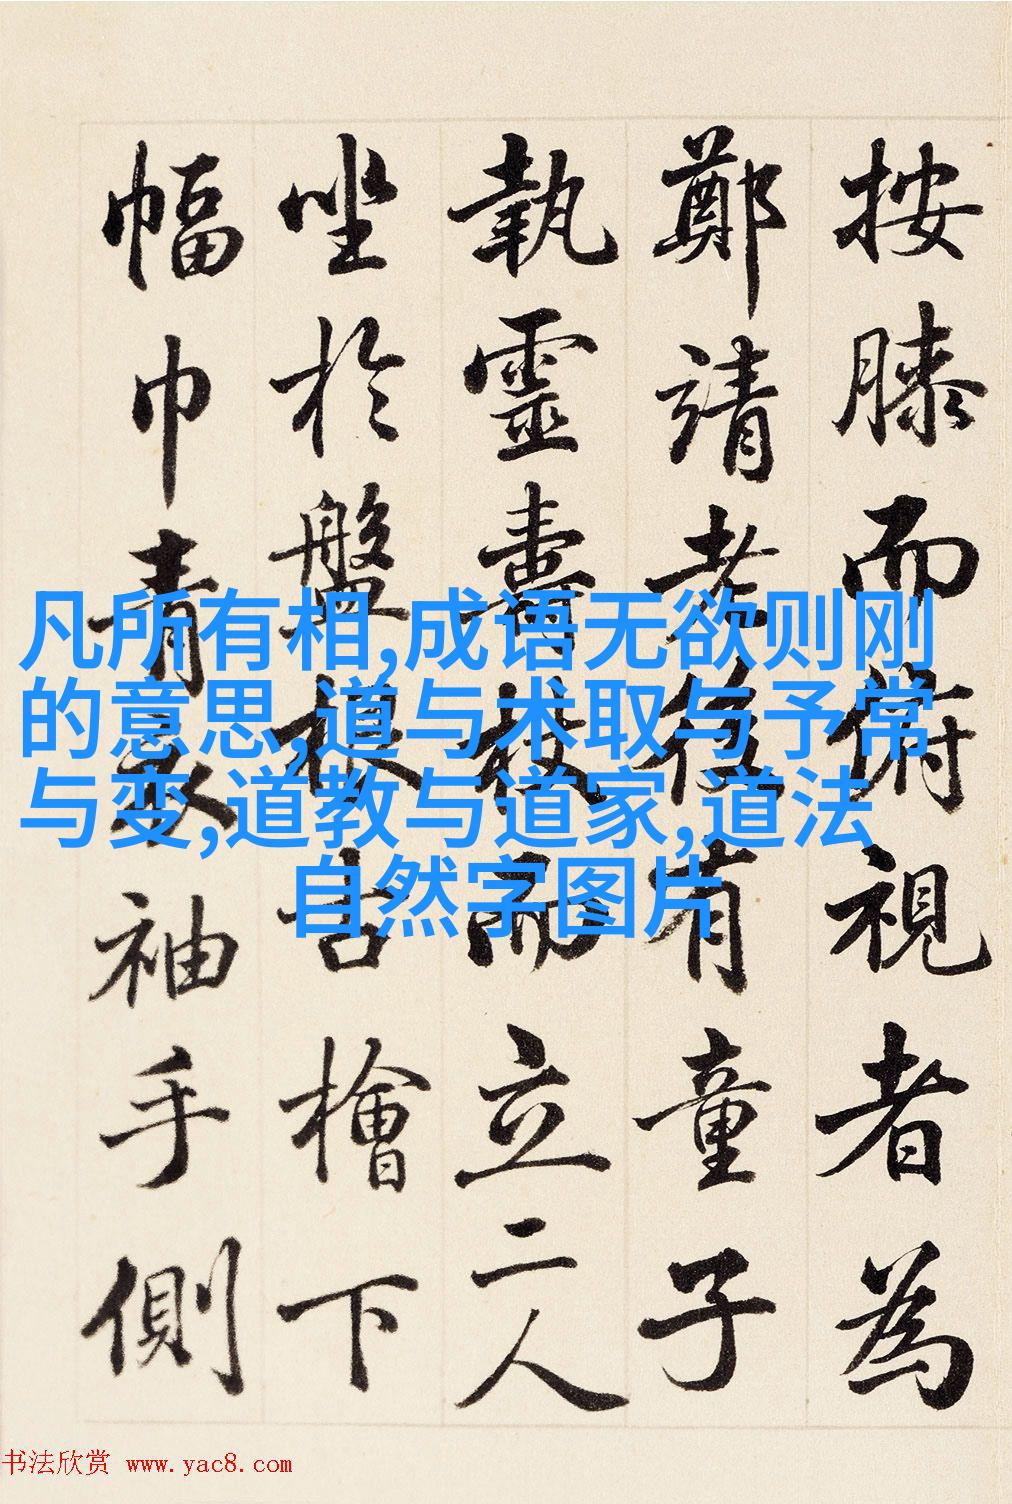 按膝而俯視者為
鄭靖老後有童子
執靈壽杖而立二人
坐於盤根古檜下
幅巾青衣袖手側
凡所有相,成语无欲则刚
的意思,道与术取与予常
与变,道教与道家,道法
自然字图片
书法欣赏 www.yac8.com